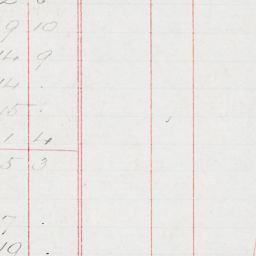 9 10
14 9
14 .
15 .
1 4
5 3
7 .
19 .